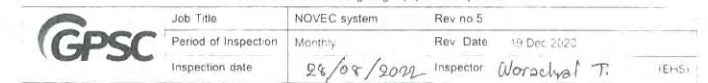 GPSC
Job Title NOVEC system Rev no.5
Period of Inspection Monthly Rev Date 19 Dec 2020
Inspection date 28/08/2022 Inspector T. (EHS)